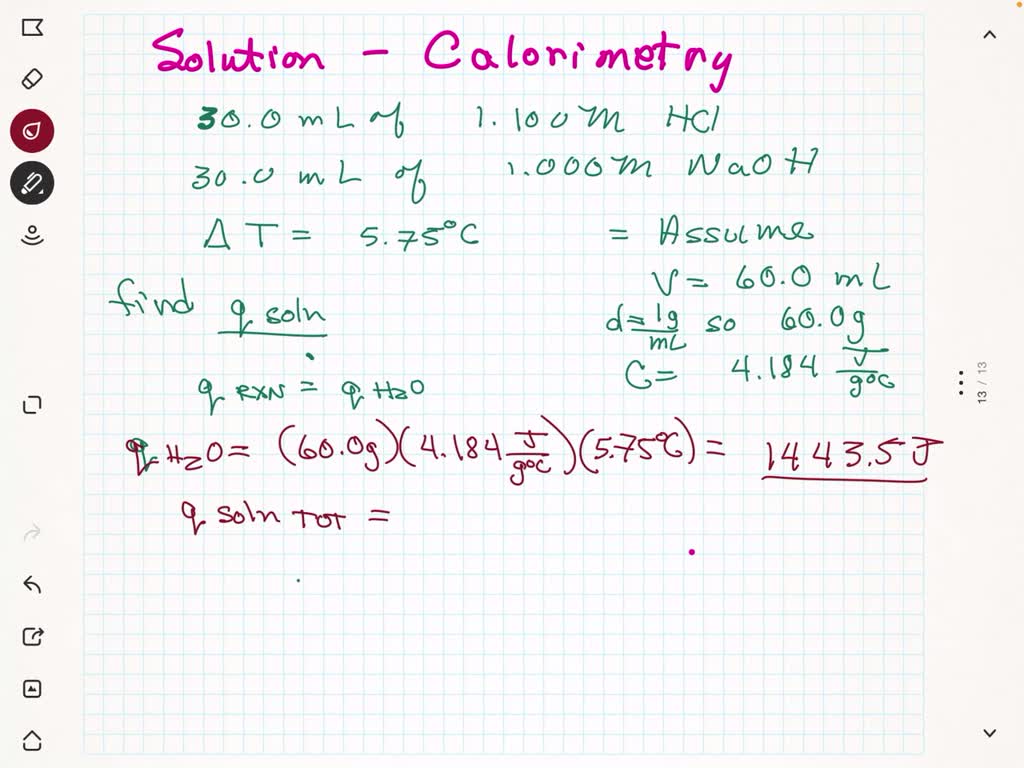 Solution - Calorimetry
30.0 mL of 1.100 M HCl
30.0 mL of 1.000 M NaOH
ΔT = 5.75°C = Assume
V = 60.0 mL
find q soln
d = 1g/mL so 60.0g
C = 4.184 J/g°C
q RXN = q H2O
q H2O = (60.0g)(4.184 J/g°C)(5.75°C) = 1443.5 J
q soln TOT =
13 / 13